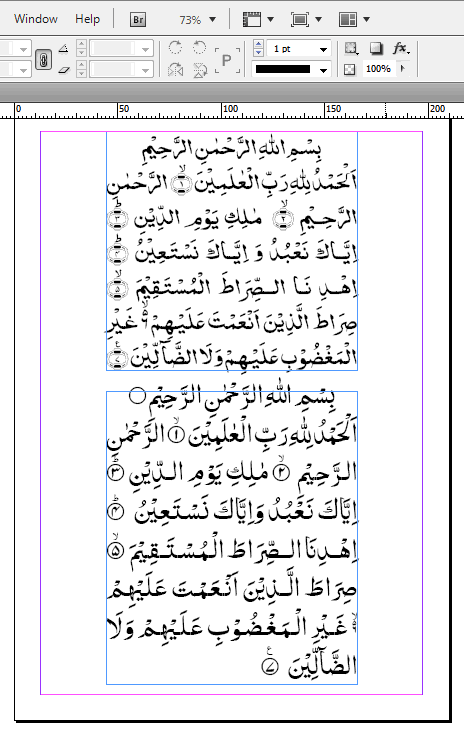 Window Help Br 73%
1 pt
P fx. 100%
0 50 100 150 200
بِسْمِ اللهِ الرَّحْمٰنِ الرَّحِيْمِ
اَلْحَمْدُ لِلهِ رَبِّ الْعٰلَمِيْنَ ۙ﴿۱﴾ الرَّحْمٰنِ
الرَّحِيْمِ ۙ﴿۲﴾ مٰلِكِ يَوْمِ الدِّيْنِ ؕ﴿۳﴾
اِيَّاكَ نَعْبُدُ وَ اِيَّاكَ نَسْتَعِيْنُ ؕ﴿۴﴾
اِهْدِ نَا الصِّرَاطَ الْمُسْتَقِيْمَ ۙ﴿۵﴾
صِرَاطَ الَّذِيْنَ اَنْعَمْتَ عَلَيْهِمْ ۙ۬ غَيْرِ
الْمَغْضُوْبِ عَلَيْهِمْ وَلَا الضَّآلِّيْنَ ﴿۷﴾
بِسْمِ اللهِ الرَّحْمٰنِ الرَّحِيْمِ
اَلْحَمْدُ لِلهِ رَبِّ الْعٰلَمِيْنَ ۙ﴿۱﴾ الرَّحْمٰنِ
الرَّحِيْمِ ۙ﴿۲﴾ مٰلِكِ يَوْمِ الدِّيْنِ ؕ﴿۳﴾
اِيَّاكَ نَعْبُدُ وَاِيَّاكَ نَسْتَعِيْنُ ؕ﴿۴﴾
اِهْدِنَا الصِّرَاطَ الْمُسْتَقِيْمَ ۙ﴿۵﴾
صِرَاطَ الَّذِيْنَ اَنْعَمْتَ عَلَيْهِمْ
ۙ۬ غَيْرِ الْمَغْضُوْبِ عَلَيْهِمْ وَلَا
الضَّآلِّيْنَ ﴿۷﴾